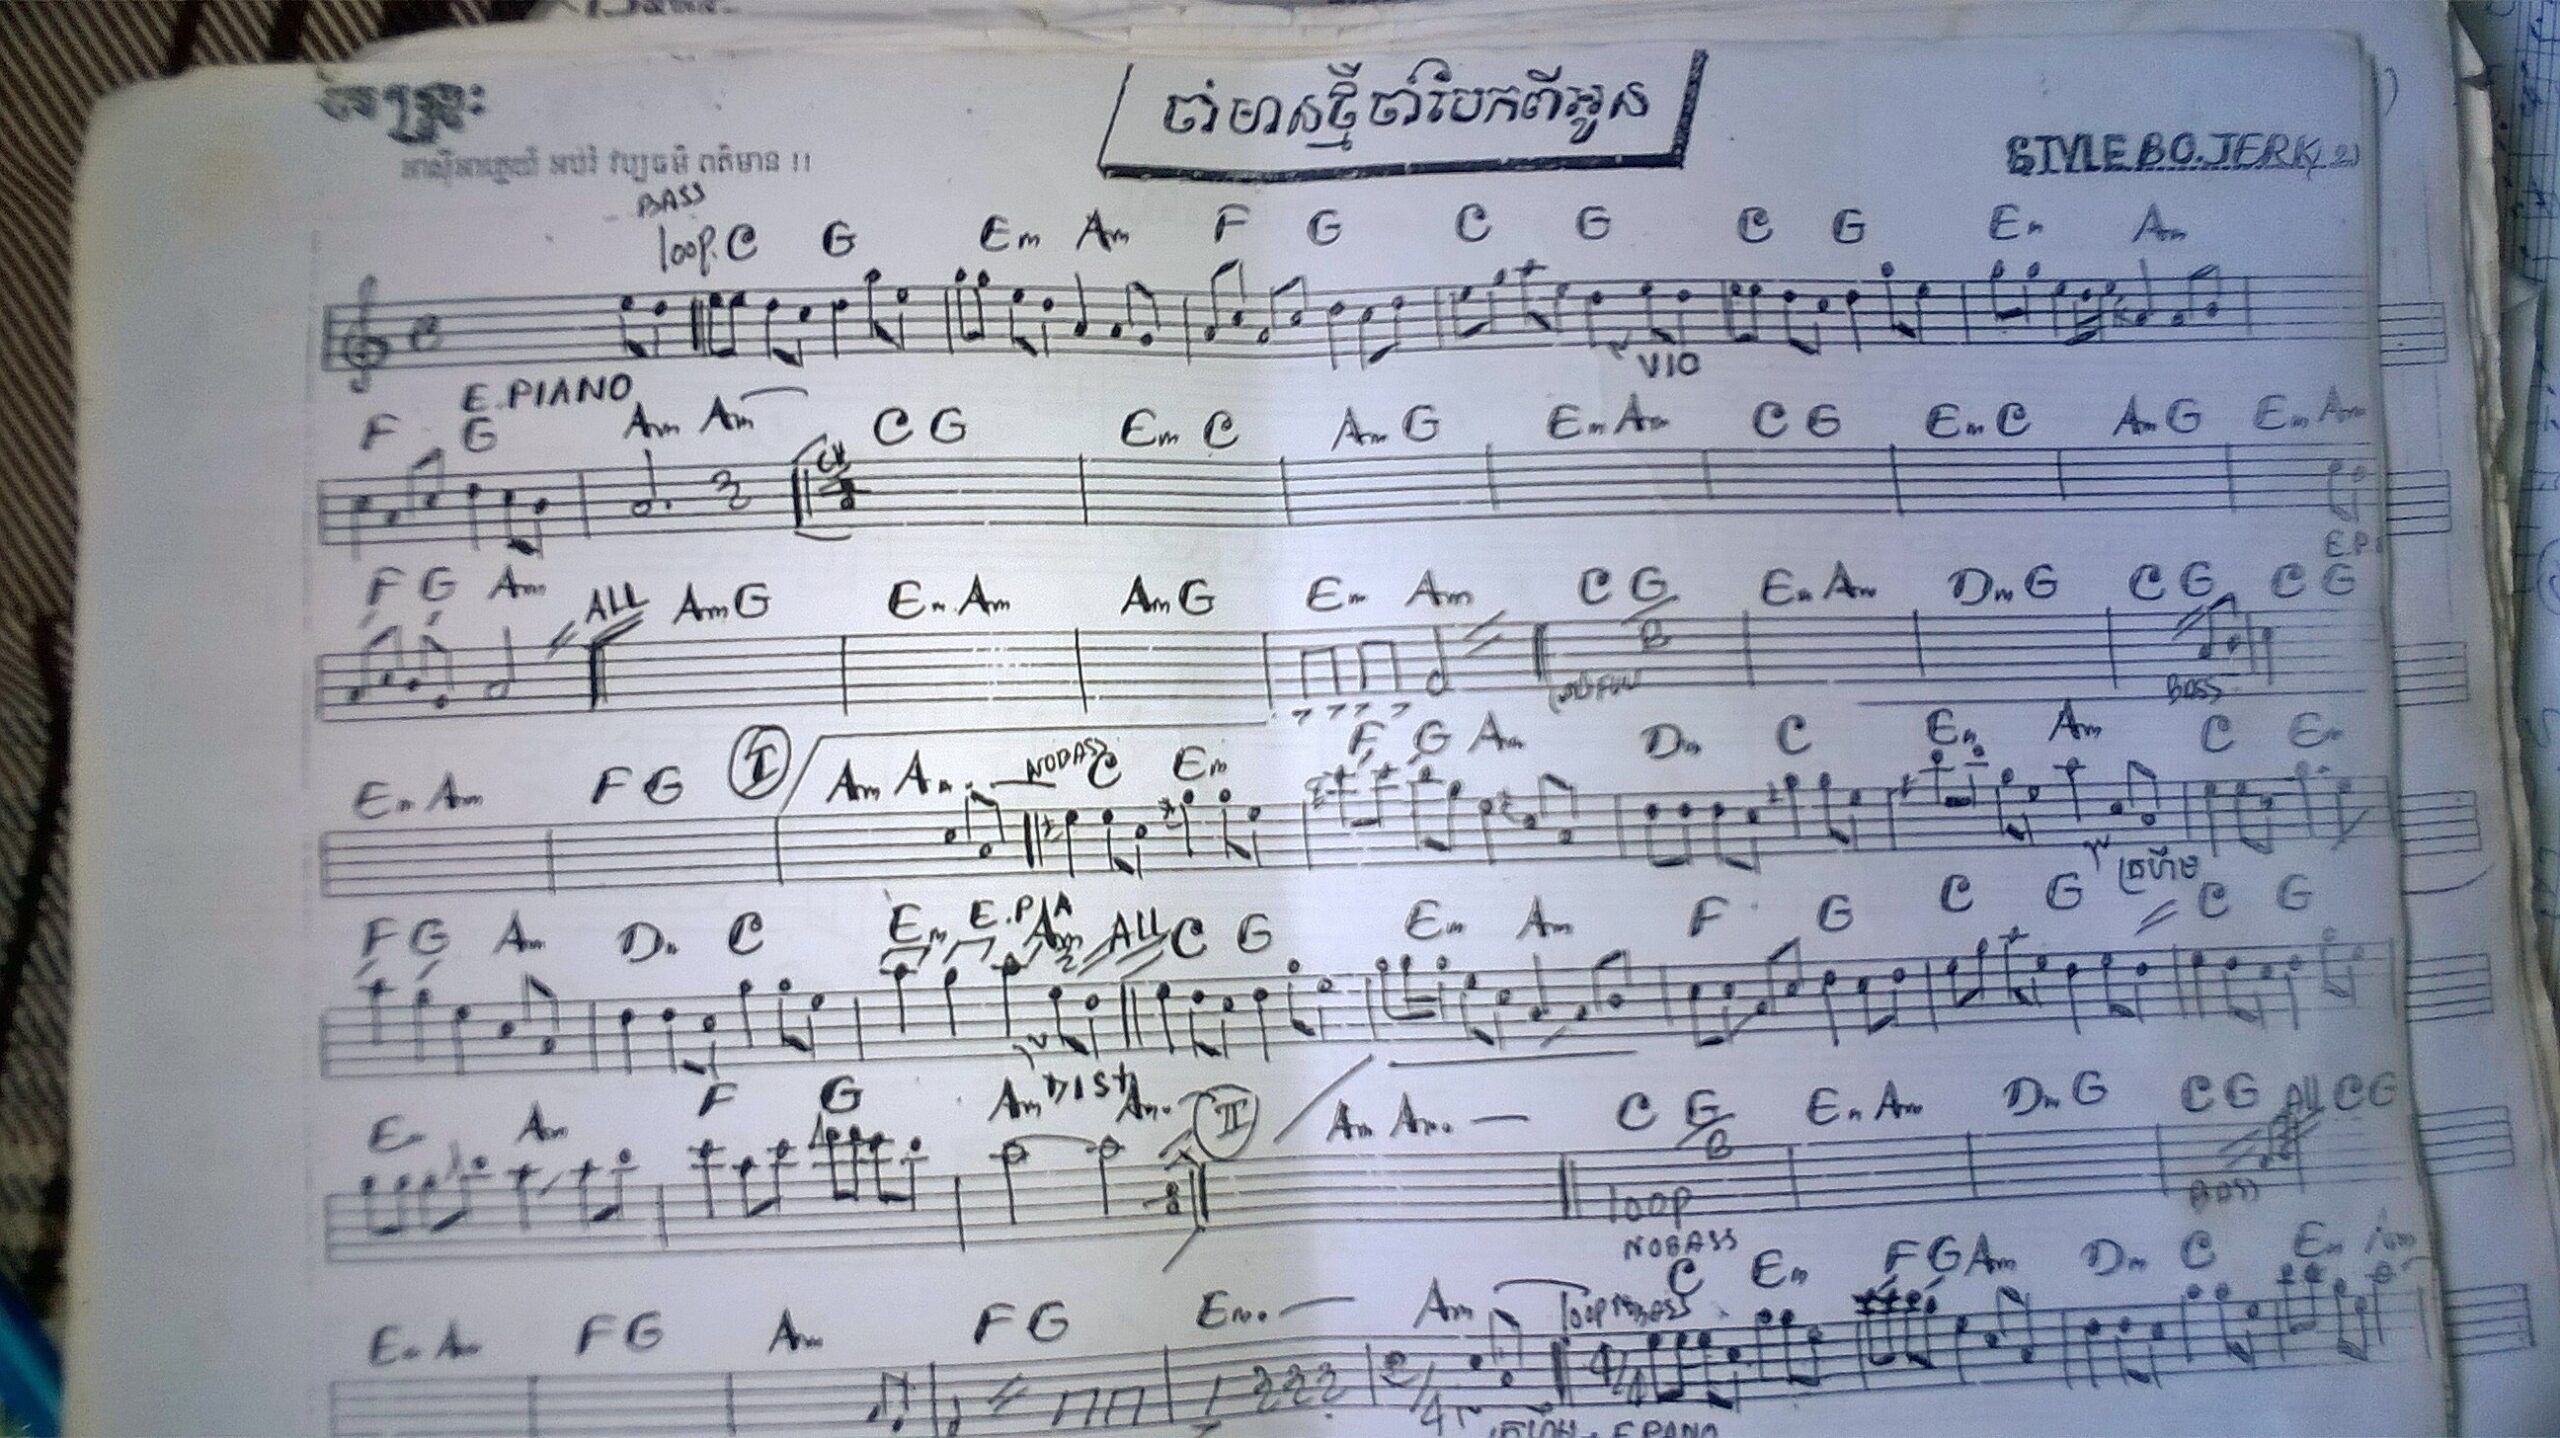 ចាំមានថ្មីចាំបែកពីអូន
STYLE BO.JERK(2)
BASS
loop. C G Em Am F G C G C G Em Am
VIO
E.PIANO
F G Am Am C G Em C Am G Em Am C G Em C Am G Em Am
E.P
F G Am ALL Am G Em Am Am G Em Am C G/B Em Am Dm G C G C G
BASS
Em Am F G I Am Am. NOBASS C Em F G Am Dm C Em Am C Em
ត្រហឹម
F G Am Dm C Em E.PA Am ALL C G Em Am F G C G C G
DIST
Em Am F G Am Am. II Am Am. C G/B Em Am Dm G C G ALL C G
loop
BASS
NOBASS
Em Am F G Am F G Em. Am loop NOBASS C Em F G Am Dm C Em Am
2/4 4/4
ត្រហឹម E.PANO